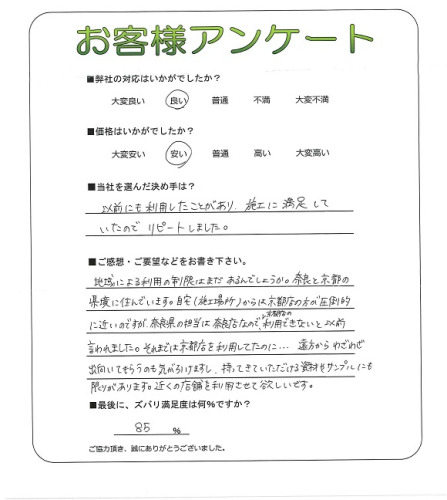 お客様アンケート
■弊社の対応はいかがでしたか？
大変良い 良い 普通 不満 大変不満
■価格はいかがでしたか？
大変安い 安い 普通 高い 大変高い
■当社を選んだ決め手は？
以前にも利用したことがあり、施工に満足して
いたので リピートしました。
■ご感想・ご要望などをお書き下さい。
地域による利用の制限はまだあるんでしょうか。奈良と京都の
県境に住んでいます。自宅(施工場所)からは京都店の方が圧倒的
に近いのですが、奈良県の担当は奈良店なので、京都店の利用できないと以前
言われました。それまでは京都店を利用してたのに… 遠方からわざわざ
出向いてもらうのも気がひけますし、持ってきていただける資材やサンプルにも
限りがあります。近くの店舗を利用させて欲しいです。
■最後に、ズバリ満足度は何%ですか？
85 %
ご協力頂き、誠にありがとうございました。